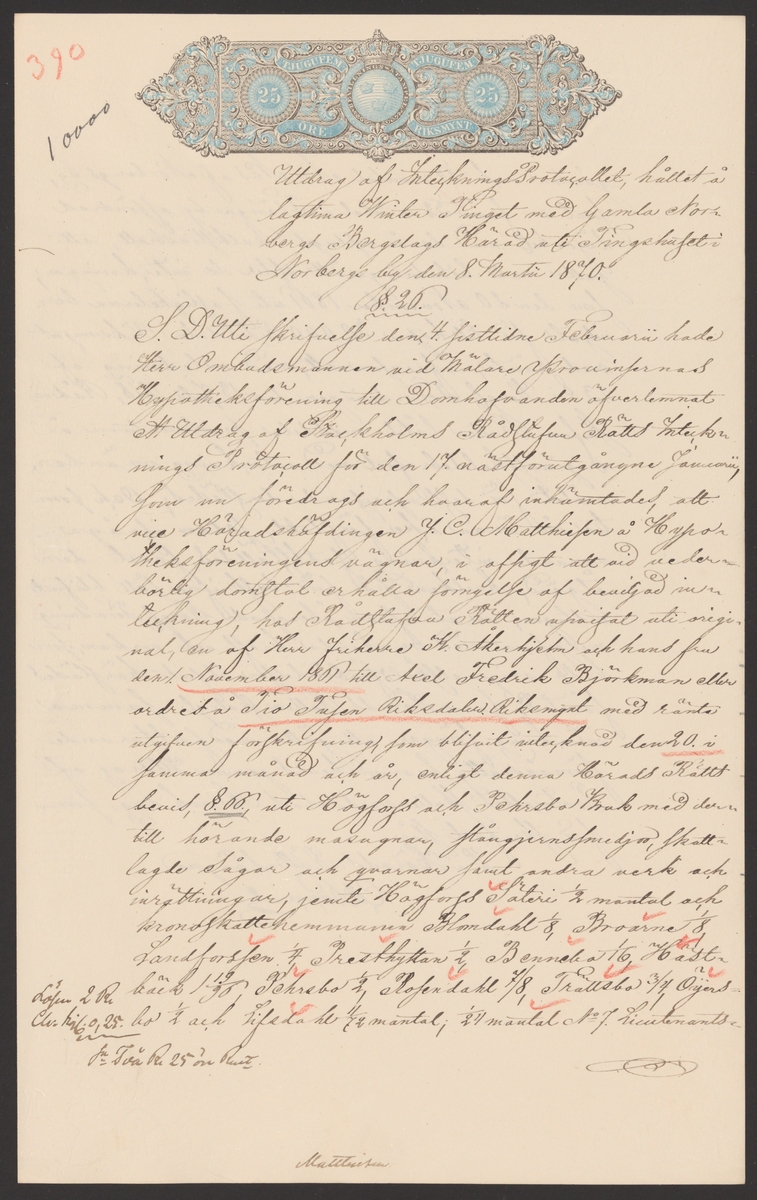 390
10000
TJUGUFEM TJUGUFEM
25 25
ÖRE RIKSMYNT
Utdrag af InteckningsProtocollet, hållet å
lagtima Winter Tinget med Gamla Nor-
bergs Bergslags Härad uti Tingshuset i
Norbergs by den 8. Martii 1870.
§. 26.
S. D. Uti skrifvelse den 4. sistlidne Februarii hade
Herr Ombudsmannen vid Mälare Provinsernas
Hypotheksförening till Domhafvanden öfverlemnat
Ett Utdrag af Stockholms Rådstufvu Rätts Inteck-
nings Protocoll för den 17. nästförutgångne Januarii,
som nu föredrogs och hvaraf inhämtades, att
vice Häradshöfdingen J. C. Matthiesen å Hypo-
theksföreningens vägnar, i afsigt att vid veder-
börlig domstol erhålla förnyelse af beviljad in-
teckning, hos Rådstufvu Rätten uppvisat uti origi-
nal, en af Herr Friherre N. Åkerhjelm och hans fru
den 1. November 1861 till Axel Fredrik Björkman eller
ordres å Tio Tusen Riksdaler Riksmynt med ränta
utgifven förskrifning, som blifvit intecknad den 20. i
samma månad och år, enligt denna Härads Rätts
bevis, §. 66, uti Högfors och Pehrsbo Bruk med der-
till hörande masugnar, stångjernssmedjor, skatt-
lagde sågar och qvarnar samt andra verk och
inrättningar, jemte Högfors Säteri 1/2 mantal och
kronoskattehemmanen Blomdahl 1/8, Broarne 1/8,
Landforssen 1/4, Presthyttan 1/2, Bennebo 1/6, Häst-
bäck 1 19/96, Pehrsbo 1/2, Rosendahl 7/8, Trättsbo 3/4, Öijers-
bo 1/2 och Lifsdahl 1/12 mantal; 1/24 mantal No 7. Lieutenants-
Lösen 2 Rd
Ch. Sig. 0,25.
Sa Två Rd 25 öre Rmt.
Matthiesen